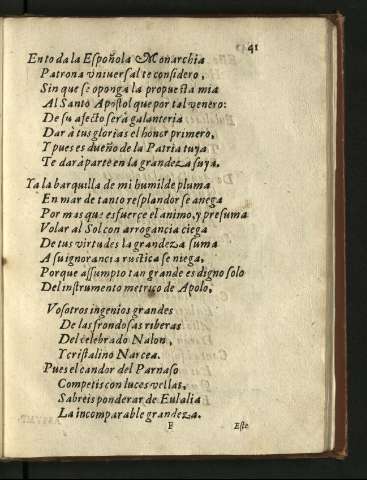 41
En toda la Española Monarchia
Patrona vniuersal te considero,
Sin que se oponga la propuesta mia
Al Santo Apostol que por tal venero:
De su afecto serà galanteria
Dar à tus glorias el honor primero,
Y pues es dueño de la Patria tuya
Te darà parte en la grandeza suya.
Ya la barquilla de mi humilde pluma
En mar de tanto resplandor se anega
Por mas que esfuerçe el animo, y presuma
Volar al Sol con arrogancia ciega
De tus virtudes la grandeza suma
A su ignorancia rustica se niega,
Porque assumpto tan grande es digno solo
Del instrumento metrico de Apolo,
Vosotros ingenios grandes
De las frondosas riberas
Del celebrado Nalon,
Y cristalino Narcea.
Pues el candor del Parnaso
Competis con luces vellas,
Sabreis ponderar de Eulalia
La incomparable grandeza.
F Este